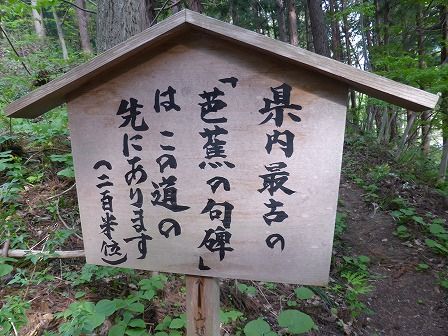 県内最古の
「芭蕉の句碑」
は この道の
先にあります
(二百米位)